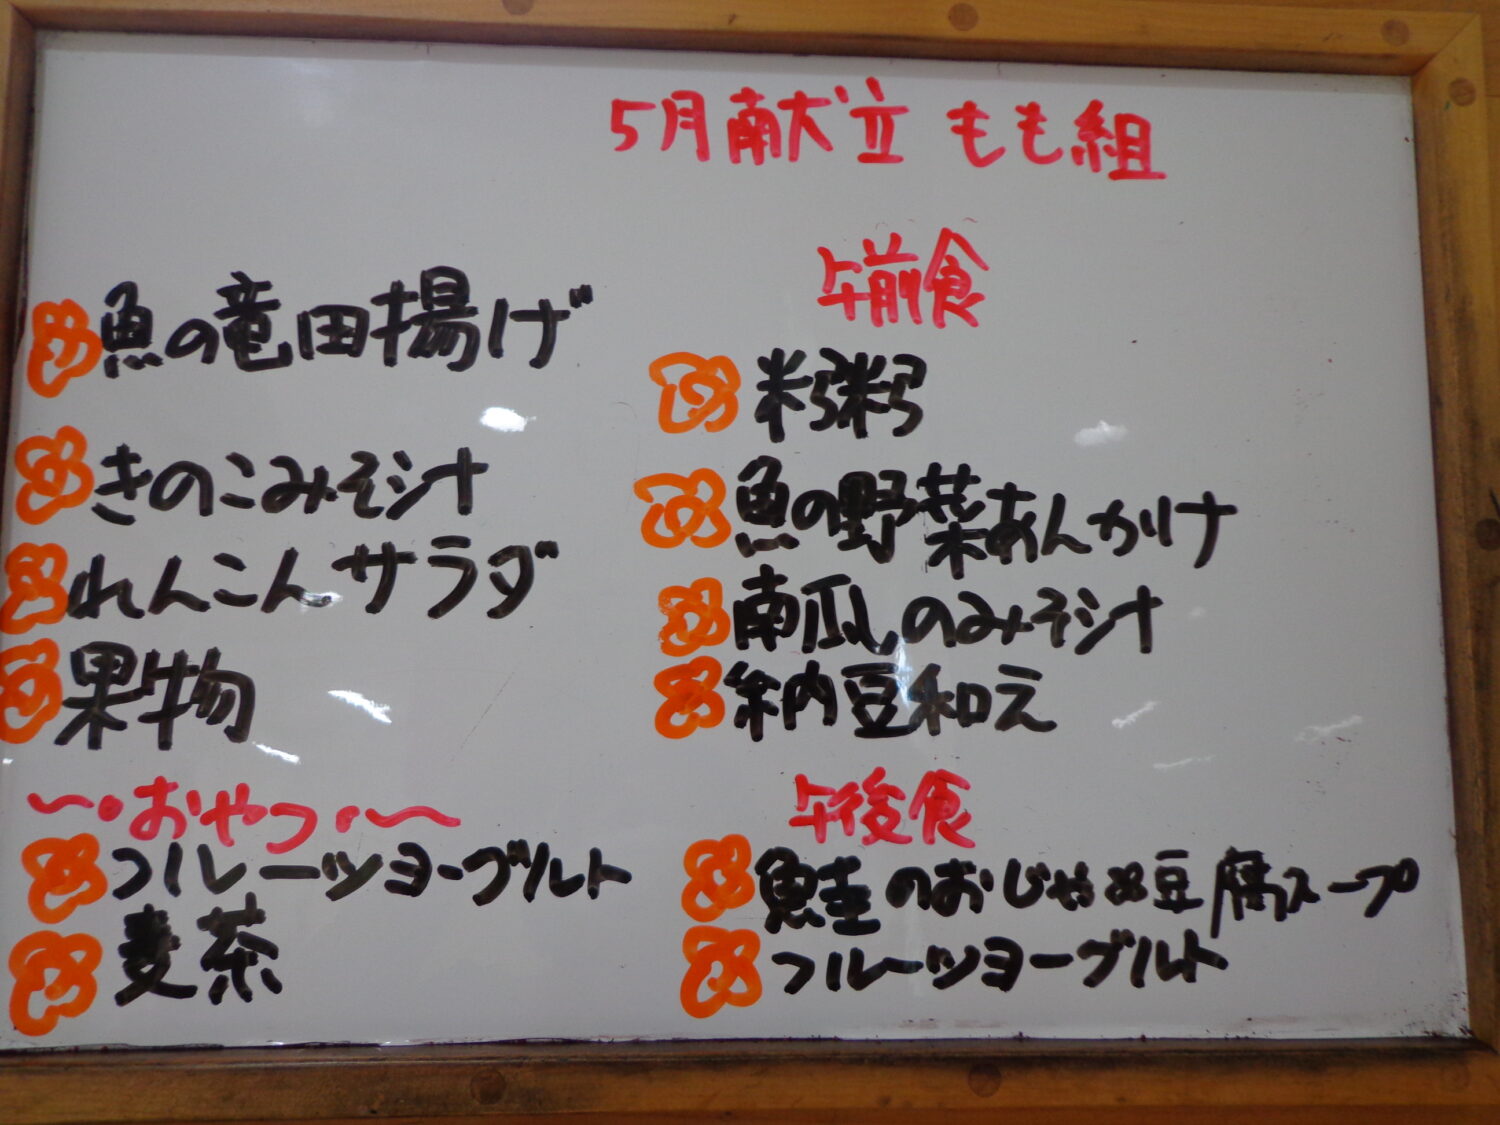 5月献立 もも組
魚の竜田揚げ
きのこみそ汁
れんこんサラダ
果物
〜・おやつ・〜
フルーツヨーグルト
麦茶
午前食
粉粥
魚の野菜あんかけ
南瓜のみそ汁
納豆和え
午後食
鮭のおじや 豆腐スープ
フルーツヨーグルト